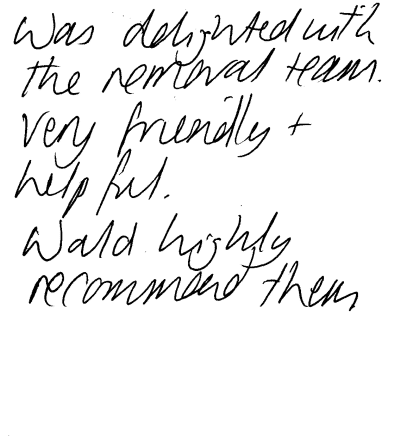 Was delighted with
the removal team.
Very friendly +
helpful.
Would highly
recommend them